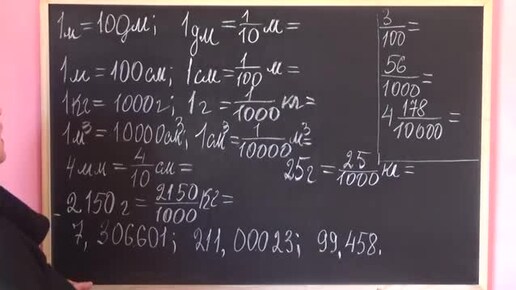 1м = 10дм; 1дм = 1/10 м =
1м = 100см; 1см = 1/100 м =
1кг = 1000г; 1г = 1/1000 кг =
1м³ = 10000см³; 1см³ = 1/10000 м³ =
4мм = 4/10 см = 25г = 25/1000 кг =
2150г = 2150/1000 кг =
7,306601; 211,00023; 99,458.
3/100 =
56/1000 =
4 178/10000 =